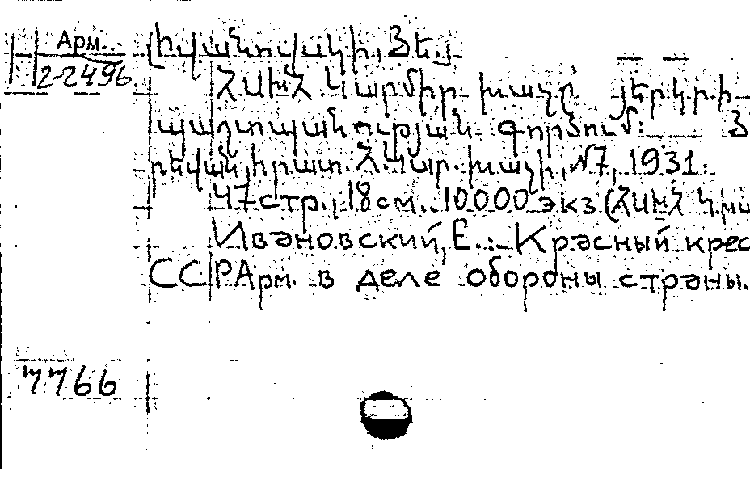 Арм. Իվանովսկի, Յե.
2-2496 ՀՍԽՀ Կարմիր խաչը յերկրի
պաշտպանության գործում: Յ
րևան, հրատ. Հ. Կար. խաչի, №7, 1931.
47 стр., 18 см. 10000 экз (ՀՍԽՀ Կար
Ивановский, Е.:- Красный крес
СС РАрм. в деле обороны страны.
7766